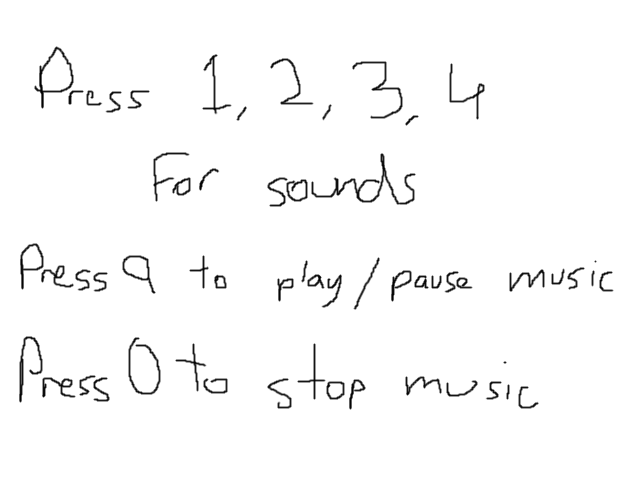 Press 1, 2, 3, 4
For sounds
Press 9 to play/pause music
Press 0 to stop music